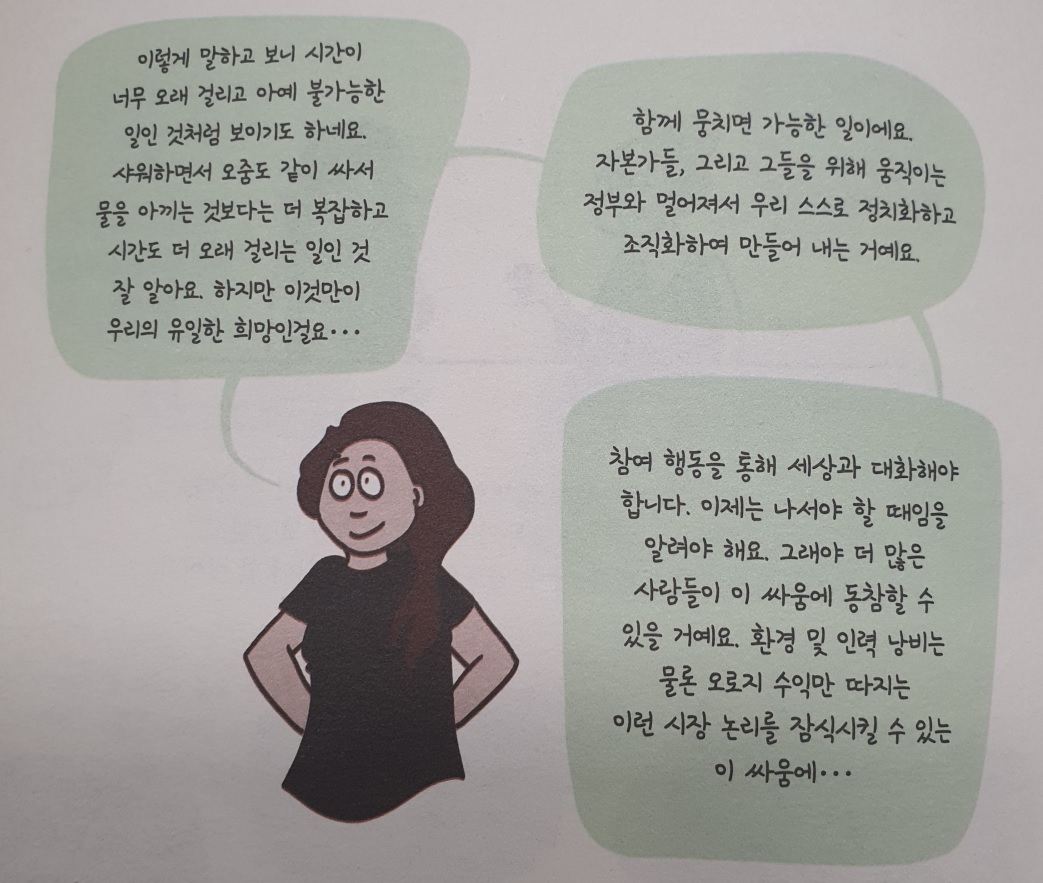 이렇게 말하고 보니 시간이
너무 오래 걸리고 아예 불가능한
일인 것처럼 보이기도 하네요.
샤워하면서 오줌도 같이 싸서
물을 아끼는 것보다는 더 복잡하고
시간도 더 오래 걸리는 일인 것
잘 알아요. 하지만 이것만이
우리의 유일한 희망인걸요···
함께 뭉치면 가능한 일이에요.
자본가들, 그리고 그들을 위해 움직이는
정부와 멀어져서 우리 스스로 정치화하고
조직화하여 만들어 내는 거예요.
참여 행동을 통해 세상과 대화해야
합니다. 이제는 나서야 할 때임을
알려야 해요. 그래야 더 많은
사람들이 이 싸움에 동참할 수
있을 거예요. 환경 및 인력 낭비는
물론 오로지 수익만 따지는
이런 시장 논리를 잠식시킬 수 있는
이 싸움에···